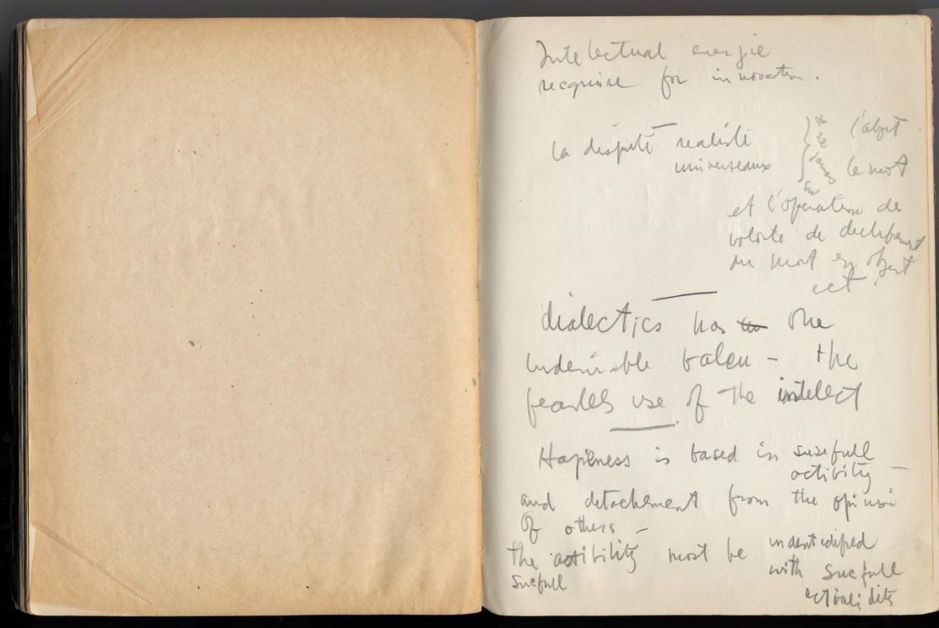 Intelectual energie
require for innovation.
la dispute realiste
universeaux
l'abjet
le mot
et l'operation de
volonte de
du mot en objet
ect.
dialectics has one
undeniable valeu - the
fearless use of the intelect
Hapiness is based in susefull
actibity -
and detachement from the opinion
of others -
the actibility most be indentidified
sucfull with sucfull
actibilidity